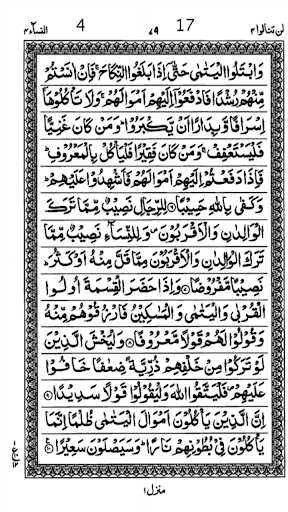 لن تنالوا ۴ 17 ۷۹ 4 النسآء ۴
وَابْتَلُوا الْيَتٰمٰى حَتّٰى اِذَا بَلَغُوا النِّكَاحَ ۚ فَاِنْ اٰنَسْتُمْ
مِّنْهُمْ رُشْدًا فَادْفَعُوْۤا اِلَيْهِمْ اَمْوَالَهُمْ ۚ وَلَا تَاْكُلُوْهَاۤ
اِسْرَافًا وَّبِدَارًا اَنْ يَّكْبَرُوْا ؕ وَمَنْ كَانَ غَنِيًّا
فَلْيَسْتَعْفِفْ ۚ وَمَنْ كَانَ فَقِيْرًا فَلْيَاْكُلْ بِالْمَعْرُوْفِ ؕ
فَاِذَا دَفَعْتُمْ اِلَيْهِمْ اَمْوَالَهُمْ فَاَشْهِدُوْا عَلَيْهِمْ ؕ
وَكَفٰى بِاللّٰهِ حَسِيْبًا ۶ لِلرِّجَالِ نَصِيْبٌ مِّمَّا تَرَكَ
الْوَالِدٰنِ وَالْاَقْرَبُوْنَ ۪ وَلِلنِّسَآءِ نَصِيْبٌ مِّمَّا
تَرَكَ الْوَالِدٰنِ وَالْاَقْرَبُوْنَ مِمَّا قَلَّ مِنْهُ اَوْ كَثُرَ ؕ
نَصِيْبًا مَّفْرُوْضًا ۷ وَاِذَا حَضَرَ الْقِسْمَةَ اُولُوا
الْقُرْبٰى وَالْيَتٰمٰى وَالْمَسٰكِيْنُ فَارْزُقُوْهُمْ مِّنْهُ
وَقُوْلُوْا لَهُمْ قَوْلًا مَّعْرُوْفًا ۸ وَلْيَخْشَ الَّذِيْنَ
لَوْ تَرَكُوْا مِنْ خَلْفِهِمْ ذُرِّيَّةً ضِعٰفًا خَافُوْا
عَلَيْهِمْ ۪ فَلْيَتَّقُوا اللّٰهَ وَلْيَقُوْلُوْا قَوْلًا سَدِيْدًا ۹
اِنَّ الَّذِيْنَ يَاْكُلُوْنَ اَمْوَالَ الْيَتٰمٰى ظُلْمًا اِنَّمَا
يَاْكُلُوْنَ فِيْ بُطُوْنِهِمْ نَارًا ؕ وَسَيَصْلَوْنَ سَعِيْرًا ۱۰
منزل ۱